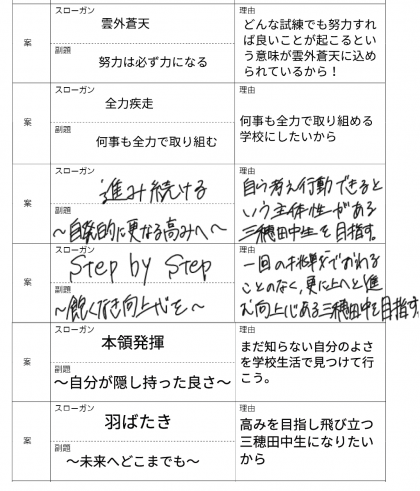 スローガン
雲外蒼天
副題
努力は必ず力になる
理由
どんな試練でも努力すれ
ば良いことが起こるとい
う意味が雲外蒼天に込め
られているから！
案
スローガン
全力疾走
副題
何事も全力で取り組む
理由
何事も全力で取り組める
学校にしたいから
案
スローガン
進み続ける
副題
〜自発的に更なる高みへ〜
理由
自ら考え行動できると
いう主体性がある
三穂田中生を目指す。
案
スローガン
Step by Step
副題
〜飽くなき向上心を〜
理由
一回の挑戦でおわる
ことのなく、更に上へと進
む向上心ある三穂田中を目指す
案
スローガン
本領発揮
副題
〜自分が隠し持った良さ〜
理由
まだ知らない自分のよさ
を学校生活で見つけて行
こう。
案
スローガン
羽ばたき
副題
〜未来へどこまでも〜
理由
高みを目指し飛び立つ
三穂田中生になりたい
から
案